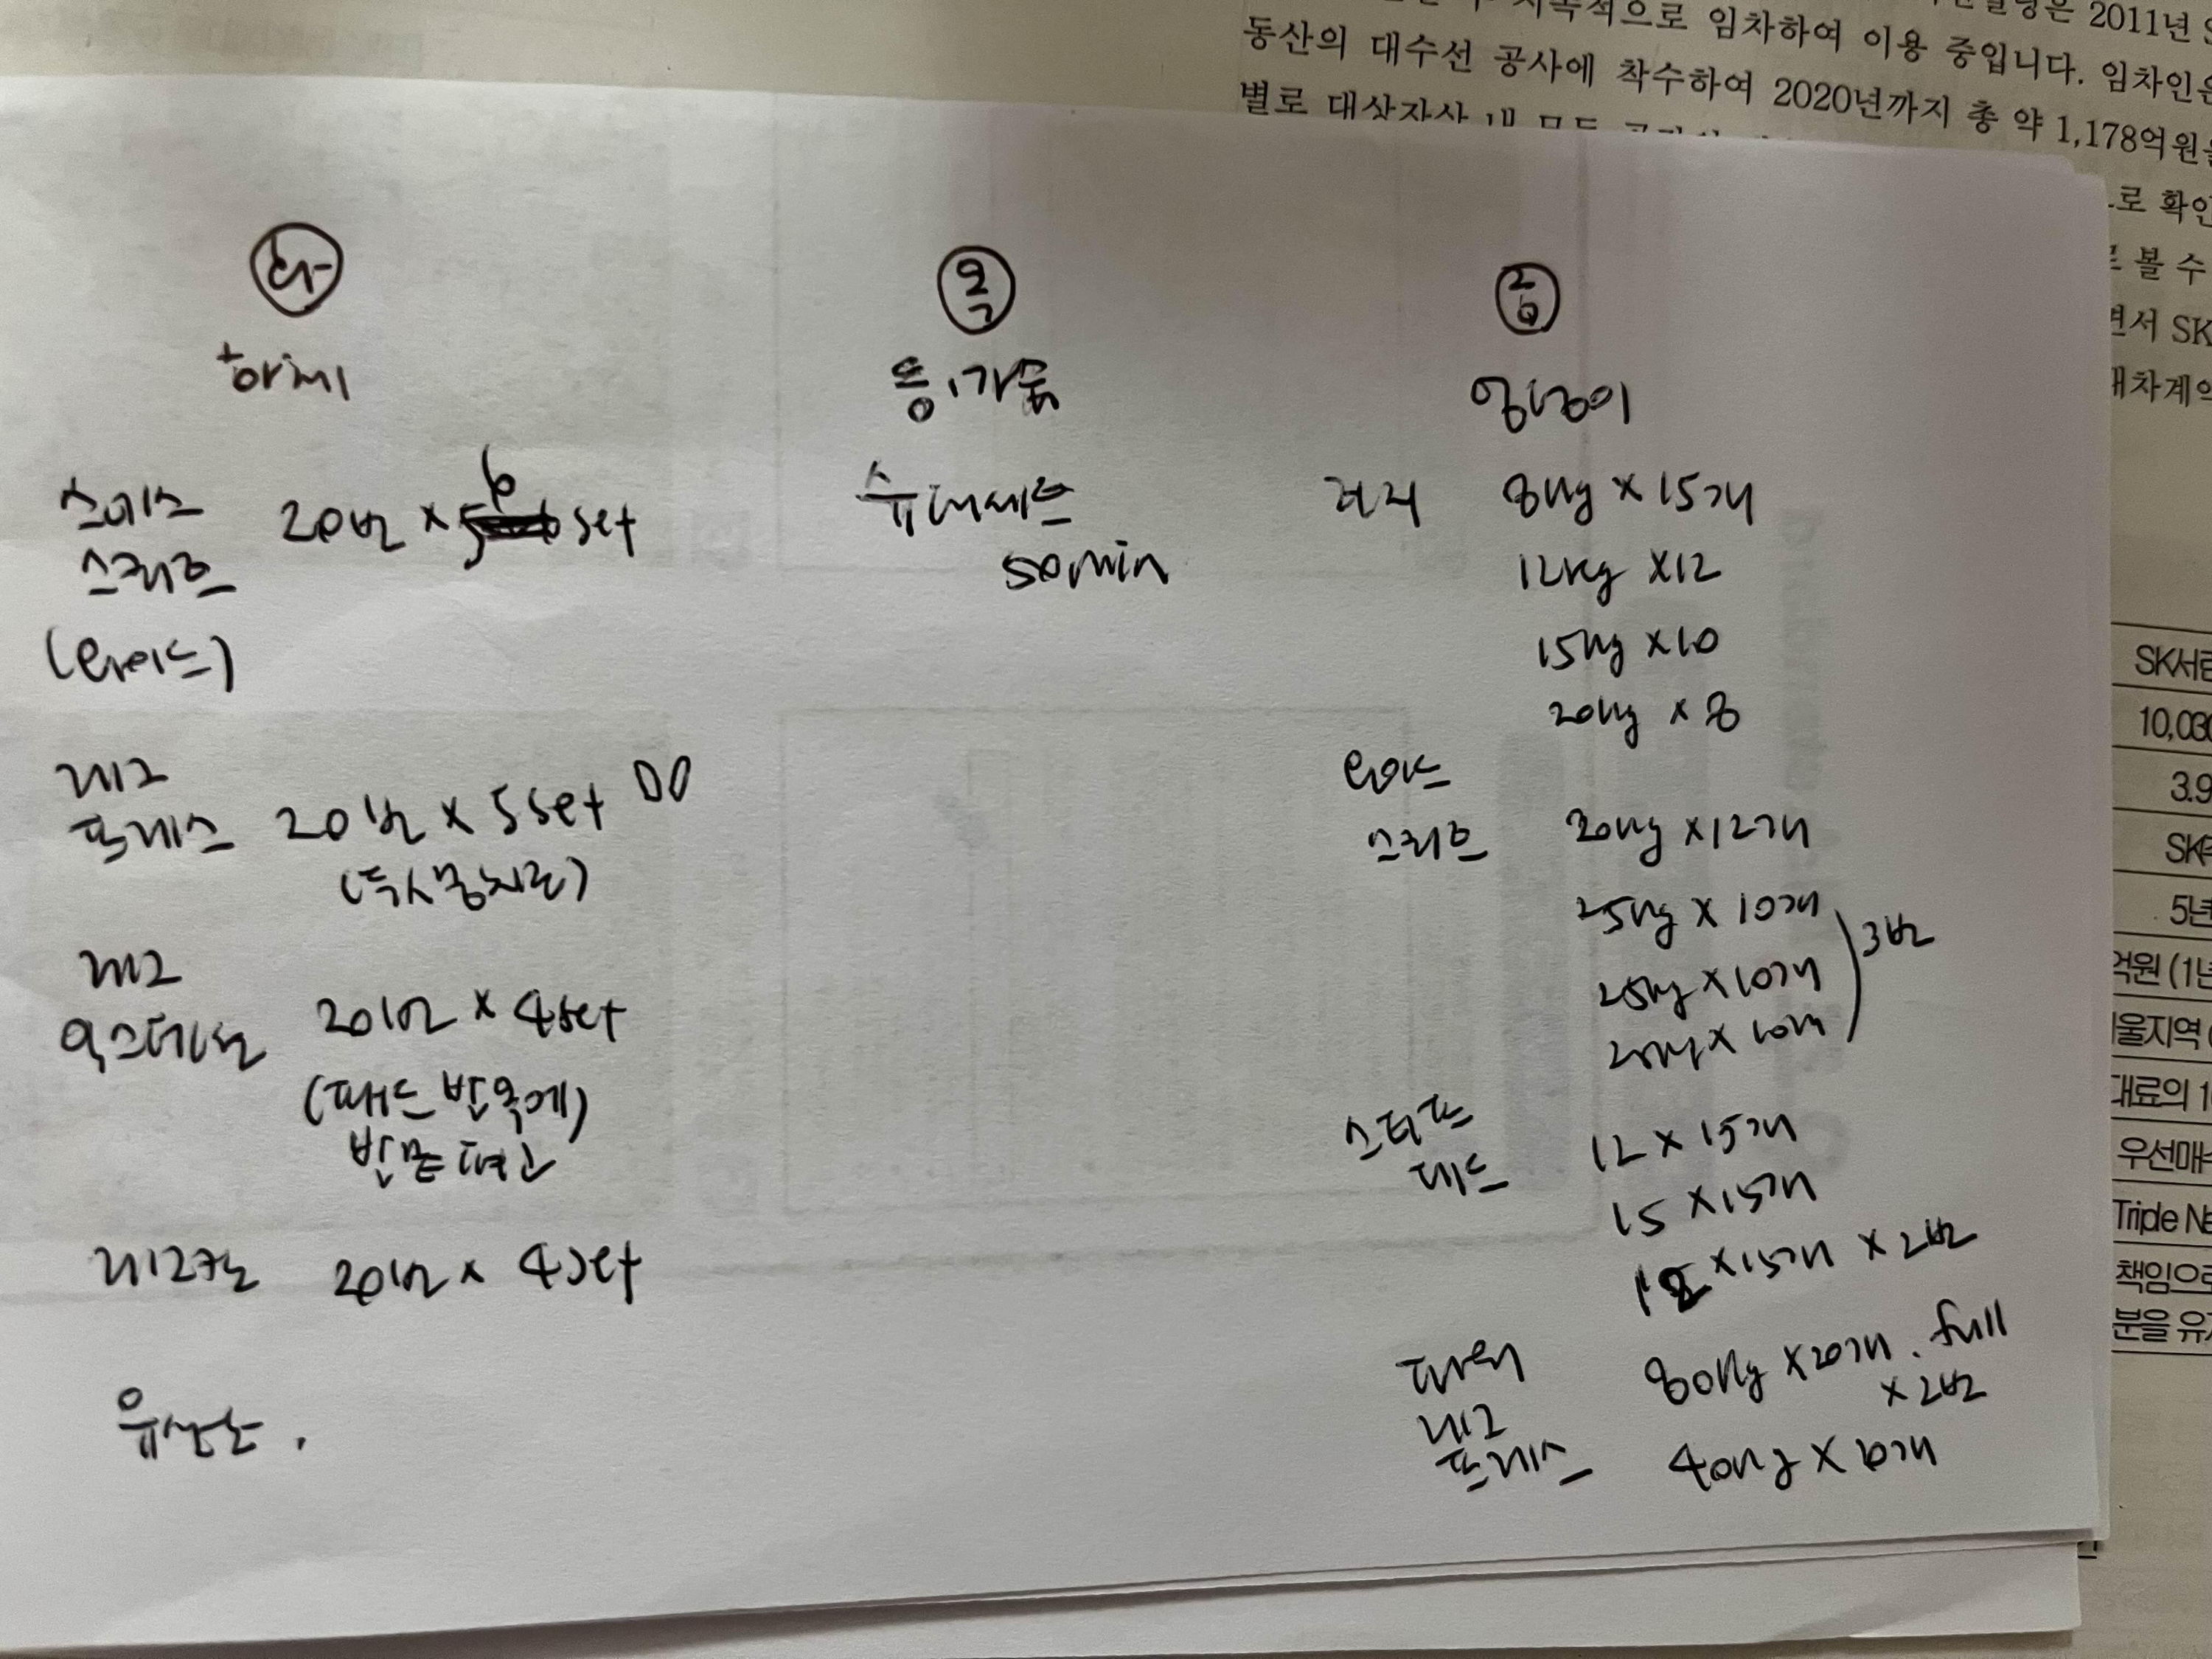 화
하체
스미스
스쿼트
(와이드)
20번 × 6 set
레그
프레스
20번 × 5set
레그
익스텐션
20번 × 4set
(패드 발목에)
레그컬
20번 × 4set
유산소.
목
등, 가슴
50min
금
엉덩이
8kg × 15개
12kg × 12
15kg × 10
20kg × 8
와이드
스쿼트
20kg × 12개
25kg × 10개
25kg × 10개
3번
스티프
데드
12 × 15개
15 × 15개
× 15개 × 2번
파워
레그
프레스
80kg × 20개. full
× 2번
40kg
지속적으로 임차하여 이용 중입니다. 임차인은
동산의 대수선 공사에 착수하여 2020년까지 총 약 1,178억원을
별로 대상자산 내 모든
로 확인
볼 수
면서 SK
대차계약
SK서린
10,030
3.9
SK
5년
억원 (1년
울지역 (
대료의 1
우선매수
Triple Ne
책임으로
분을 유지